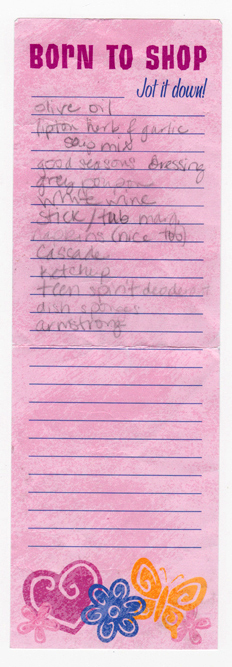 BORN TO SHOP
Jot it down!
olive oil
lipton herb & garlic
soup mix
good seasons dressing
grey poupon
white wine
stick/tub marg
napkins (nice too)
cascade
ketchup
teen spirit deodorant
dish sponges
armstrong